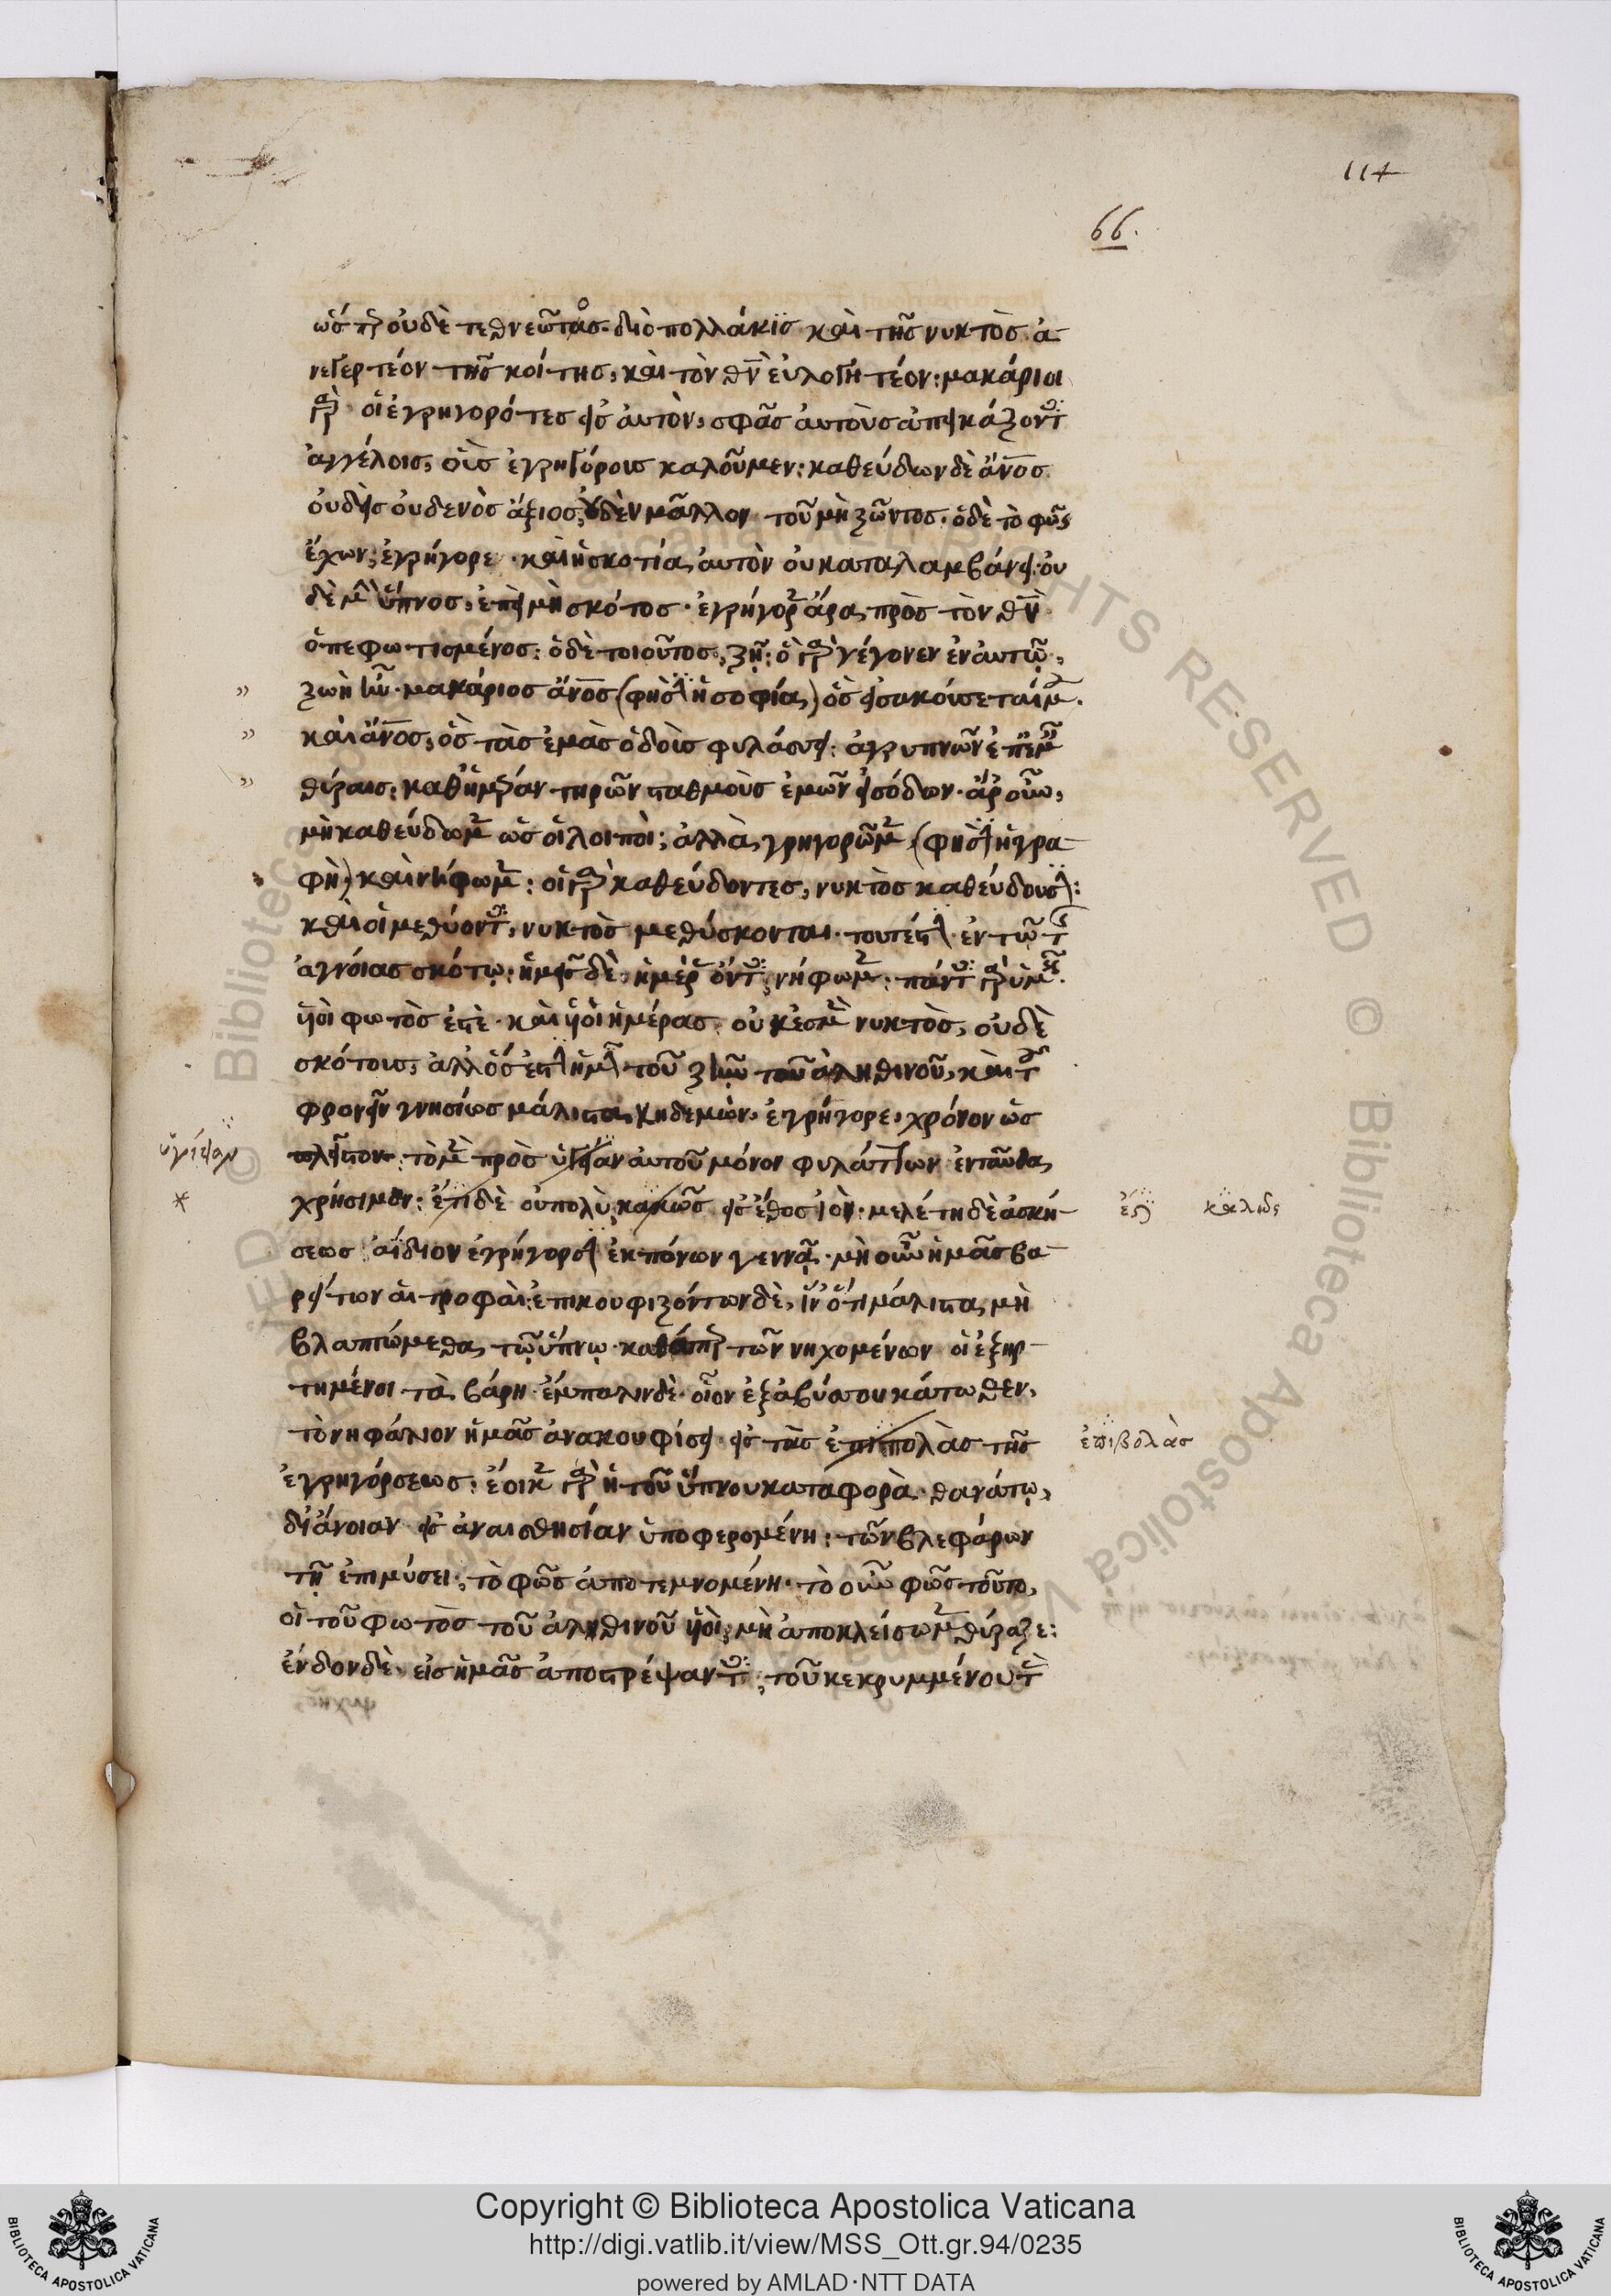 114
66.
ὥσπερ οὐδὲ τεθνεῶτος. διὸ πολλάκις καὶ τῆς νυκτὸς ἀ-
νεγερτέον τῆς κοίτης, καὶ τὸν θν εὐλογητέον: μακάριοι
γὰρ οἱ ἐγρηγορότες εἰς αὐτὸν, σφᾶς αὐτοὺς ἀπεικάζοντες
ἀγγέλοις, οὓς ἐγρηγόρους καλοῦμεν: καθεύδων δὲ ἄνος
οὐδεὶς οὐδενὸς ἄξιος, οὐδὲν μᾶλλον τοῦ μὴ ζῶντος. ὁ δὲ τὸ φῶς
ἔχων, ἐγρήγορε. καὶ ἡ σκοτία αὐτὸν οὐ καταλαμβάνει. οὐ
δὲ μὴν ὕπνος, ἐπεὶ μὴ σκότος. ἐγρήγορεν ἄρα πρὸς τὸν θν
ὁ πεφωτισμένος: ὁ δὲ τοιοῦτος, ζῇ: ὃ γὰρ γέγονεν ἐν αὐτῷ,
ζωὴ ἦν. μακάριος ἄνος (φησὶν ἡ σοφία) ὃς εἰσακούσεταί μου.
καὶ ἄνος, ὃς τὰς ἐμὰς ὁδοὺς φυλάσσει: ἀγρυπνῶν ἐπ' ἐμαῖς
θύραις, καθ' ἡμέραν τηρῶν σταθμοὺς ἐμῶν εἰσόδων. ἄρ' οὖν,
μὴ καθεύδωμεν ὡς οἱ λοιποὶ; ἀλλὰ γρηγορῶμεν (φησὶν ἡ γρα-
φὴ) καὶ νήφωμεν: οἱ γὰρ καθεύδοντες, νυκτὸς καθεύδουσιν:
καὶ οἱ μεθύοντες, νυκτὸς μεθύσκονται. τουτέστιν ἐν τῷ τῆς
ἀγνοίας σκότῳ: ἡμεῖς δὲ, ἡμέρας ὄντες, νήφωμεν: πάντες γὰρ ὑμεῖς
υἱοὶ φωτὸς ἐστὲ. καὶ υἱοὶ ἡμέρας. οὐκ ἐσμὲν νυκτὸς, οὐδὲ
σκότους, ἀλλ' ὅς ἐστιν ἡμῖν τοῦ ζῆν τοῦ ἀληθινοῦ, καὶ τοῦ
φρονεῖν γνησίως μάλιστα κηδεμὼν, ἐγρήγορε, χρόνον ὡς
πλεῖστον: τὸ μὲν πρὸς ὑγείαν αὐτοῦ μόνον φυλάττων ἐνταῦθα
ὑγίειαν
χρήσιμον: ἔτι δὲ οὐ πολὺ, κακῶς εἰς ἔθος ἰὸν. μελέτη δὲ ἀσκή-
*
ἐστι καλῶς
σεως ἀΐδιον ἐγρήγορσιν ἐκ πόνων γεννᾷ. μὴ οὖν ἡμᾶς βα-
ρείτων αἱ τροφαὶ: ἐπικουφιζόντων δὲ, ἵν' ὅτι μάλιστα μὴ
βλαπτώμεθα τῷ ὕπνῳ. καθάπερ τῶν νηχομένων οἱ ἐξηρ-
τημένοι τὰ βάρη. ἔμπαλιν δὲ. οἷον ἐξ ἀβύσσου κάτωθεν,
τὸ νηφάλιον ἡμᾶς ἀνακουφίσει εἰς τὰς ἐπιπολὰς τῆς
ἐπιβολὰς
ἐγρηγόρσεως: ἔοικεν γὰρ ἡ τοῦ ὕπνου καταφορὰ θανάτῳ,
δι' ἄνοιαν εἰς ἀναισθησίαν ὑποφερομένη: τῶν βλεφάρων
τῇ ἐπιμύσει, τὸ φῶς ἀποτεμνομένη. τὸ οὖν φῶς τοῦτο,
οἱ τοῦ φωτὸς τοῦ ἀληθινοῦ υἱοὶ, μὴ ἀποκλείσωμεν θύραζε:
ἔνδον δὲ εἰς ἡμᾶς ἀποστρέψαντες, τοῦ κεκρυμμένου τὰς
Copyright © Biblioteca Apostolica Vaticana
http://digi.vatlib.it/view/MSS_Ott.gr.94/0235
powered by AMLAD·NTT DATA
BIBLIOTECA APOSTOLICA VATICANA
BIBLIOTECA APOSTOLICA VATICANA